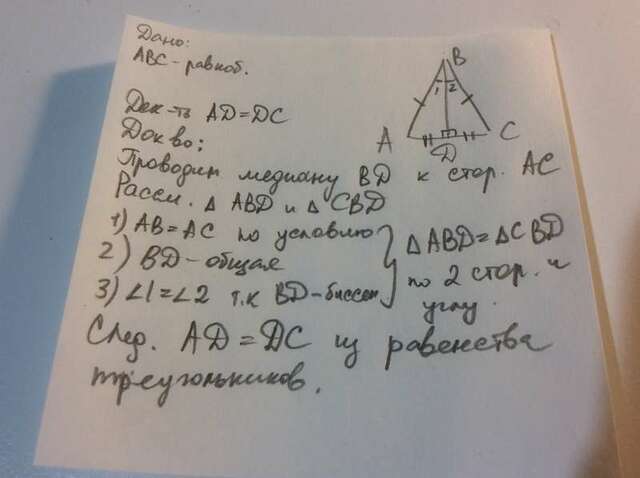 Дано:
ABC - равноб.
Док-ть AD = DC
Док во:
Проводим медиану BD к стор. AC
Рассм. △ ABD и △ CBD
1) AB = AC по условию
2) BD - общая
3) ∠1 = ∠2 т.к BD - биссек
△ABD = △CBD
по 2 стор. и
углу.
След. AD = DC из равенства
треугольников.
B
1 2
A
D
C